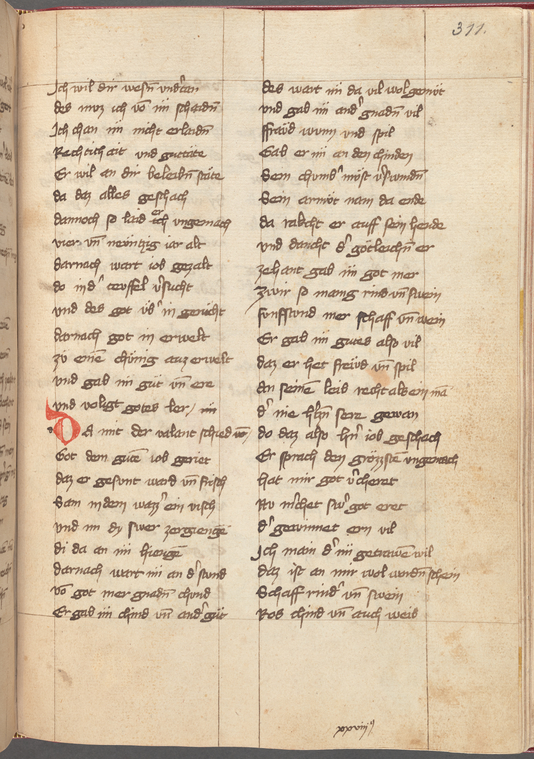 311.
Ich wil dir wesn̄ vndˀtan
des mvz ich vō im scheidn̄
Ich chan im nicht erlaidn̄
Rechtichait vnd guttate
Er wil an dir beleibn̄ státe
da daz alles geschach
dannoch so laid ich vngemach
vier vn̄ neuntzig iar alt
darnach wart iob gezalt
do in dˀ tewffel vˀsucht
vnd des got vbˀ in gericht
darnach got in erwelt
zů einē chunig auzerwelt
vnd gab im gůt vn̄ ere
vnd voligt gotes ler / im
Da mit der valant schied
Got dem gůtē iob geriet
daz er gesunt ward vn̄ frisch
Sam in dem wazzˀ ein visch
vnd im dy swer zergienge
di da an im hienge
darnach wart im an dˀ stund
vō got mer gnadn̄ chund
Er gab im chind vn̄ andˀ gůt
des wart im da vil wolgemůt
vnd gab im andˀ gnadn̄ vil
ffraud wunn vnd spil
Gab er im an den chinden
Sein chumbˀ must vˀswindn̄
Sein armůt nam da ende
da rakcht er auff sein hende
vnd dancht dˀ gótleichn̄ er
zehant gab im got mer
zwir so manig rind vn̄ swein
funfstund mer schaff vn̄ wein
Er gab im gutes also vil
daz er het freud vn̄ spil
an seinē leib recht als ein mā
dˀ nie sere gewan
do daz also iob geschach
Er sprach den grózzsten vngemach
hat mir got vˀcheret
Nv got eret
dˀ gewinnet ern vil
Ich main dˀ im getrawē wil
daz ist an mir wol wordn̄ schein
Schaff rindˀ vn̄ swein
Ros chind vn̄ auch weib
xxviii